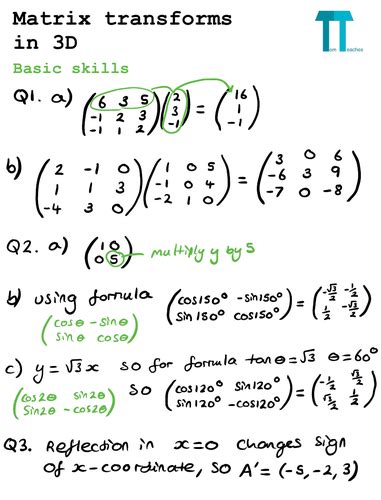 Matrix transforms
in 3D
Tom Teaches
Basic skills
Q1. a) (6 3 5; -1 2 3; -1 1 2)(2; 3; -1) = (16; 1; -1)
b) (2 -1 0; 1 1 3; -4 3 0)(1 0 5; -1 0 4; -2 1 0) = (3 0 6; -6 3 9; -7 0 -8)
Q2. a) (1 0; 0 5) multiply y by 5
b) using formula (cos150° -sin150°; sin150° cos150°) = (-√3/2 -1/2; 1/2 -√3/2)
(cosθ -sinθ; sinθ cosθ)
c) y = √3x so for formula tanθ = √3 θ = 60°
(cos2θ sin2θ; sin2θ -cos2θ) so (cos120° sin120°; sin120° -cos120°) = (-1/2 √3/2; √3/2 1/2)
Q3. Reflection in x=0 changes sign
of x-coordinate, so A' = (-5, -2, 3)